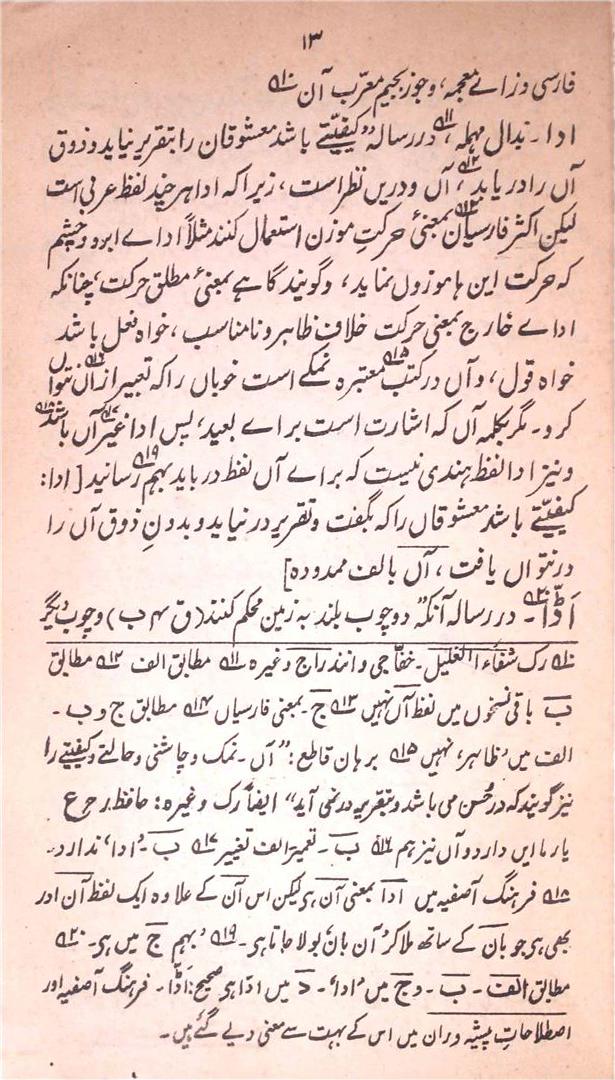 ۱۳
فارسی و زاے معجمہ، و جوز بجیم معرّب آن ۱۰؎
ادا۔ بدال مہملہ ۱۱؎، در رسالہ "کیفیتے باشد معشوقان را بتقریر نیاید و ذوق
آں را دریابد ۱۲؎، آں و دریں نظر است، زیرا کہ ادا ہر چند لفظ عربی است
لیکن اکثر فارسیان ۱۳؎ بمعنیٔ حرکتِ موزن استعمال کنند مثلاً اداے ابرو و چشم
کہ حرکت این ہا موزوں نماید، و گویند گاہے بمعنیٔ مطلق حرکت، چنانکہ
اداے خارج بمعنی حرکت خلاف ظاہر و نامناسب، خواہ فعل باشد
خواہ قول، و آں در کتب ۱۵؎ معتبرہ نمکے است خوباں را کہ تعبیر ازاں ۱۶؎ نتواں
کرد۔ مگر بکلمہ آں کہ اشارت است براے بعید، پس ادا غیر ۱۷؎ آں باشد ۱۸؎
و نیز ادا لفظ ہندی نیست کہ براے آں لفظ در باید بہم ۱۹؎ رسانید [ادا:
کیفیتے باشد معشوقاں را کہ بگفت و تقریر در نیاید و بدونِ ذوق آں را
در نتواں یافت، آں بالف ممدودہ]
اَڈّا ۲۰؎۔ در رسالہ آنکہ "دو چوب بلند بہ زمین محکم کنند (ق ۴ ب) و چوب دیگر
۱۰؎ رک شفاء الغلیل۔ خفاجی و انندراج وغیرہ ۱۱؎ مطابق الف ۱۲؎ مطابق
ب باقی نسخوں میں لفظ آں نہیں ۱۳؎ ج۔ بمعنی فارسیاں ۱۴؎ مطابق ج و ب۔
الف میں 'ظاہر' نہیں ۱۵؎ برہان قاطع: "آں۔ نمک و چاشنی و حالتے و کیفیتے را
نیز گویند کہ در حُسن می باشد و بتقریر در نمی آید" ایضاً رک وغیرہ: حافظ؎ ع
یار ما ایں دارد و آں نیز ہم ۱۶؎ ب۔ تعمیر الف تغییر ۱۷؎ ب۔ 'ادا' ندارد۔
۱۸؎ فرہنگ آصفیہ میں ادا بمعنی آن ہی لیکن اس آن کے علاوہ ایک لفظ آن اور
بھی ہی جو بان کے ساتھ ملا کر 'آن بان' بولا جاتا ہی۔ ۱۹؎ 'بہم' ج میں ہی۔ ۲۰؎
مطابق الف۔ ب۔ و ج میں 'ادا'۔ د میں ادّا ہی صحیح: اَڈّا۔ فرہنگ آصفیہ اور
اصطلاحات پیشہ وران میں اس کے بہت سے معنی دیے گئے ہیں۔